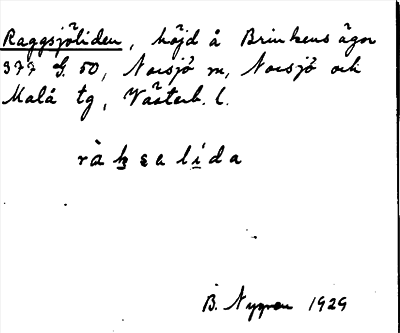 Raggsjöliden, höjd å Brinkens ägor
377 G. 50, Norsjö m, Norsjö och
Malå tg, Västerb. l.
B. Nygren 1929